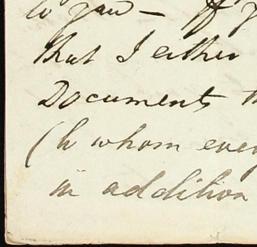 to you — If y
that I either
Documents th
(to whom every
in addition